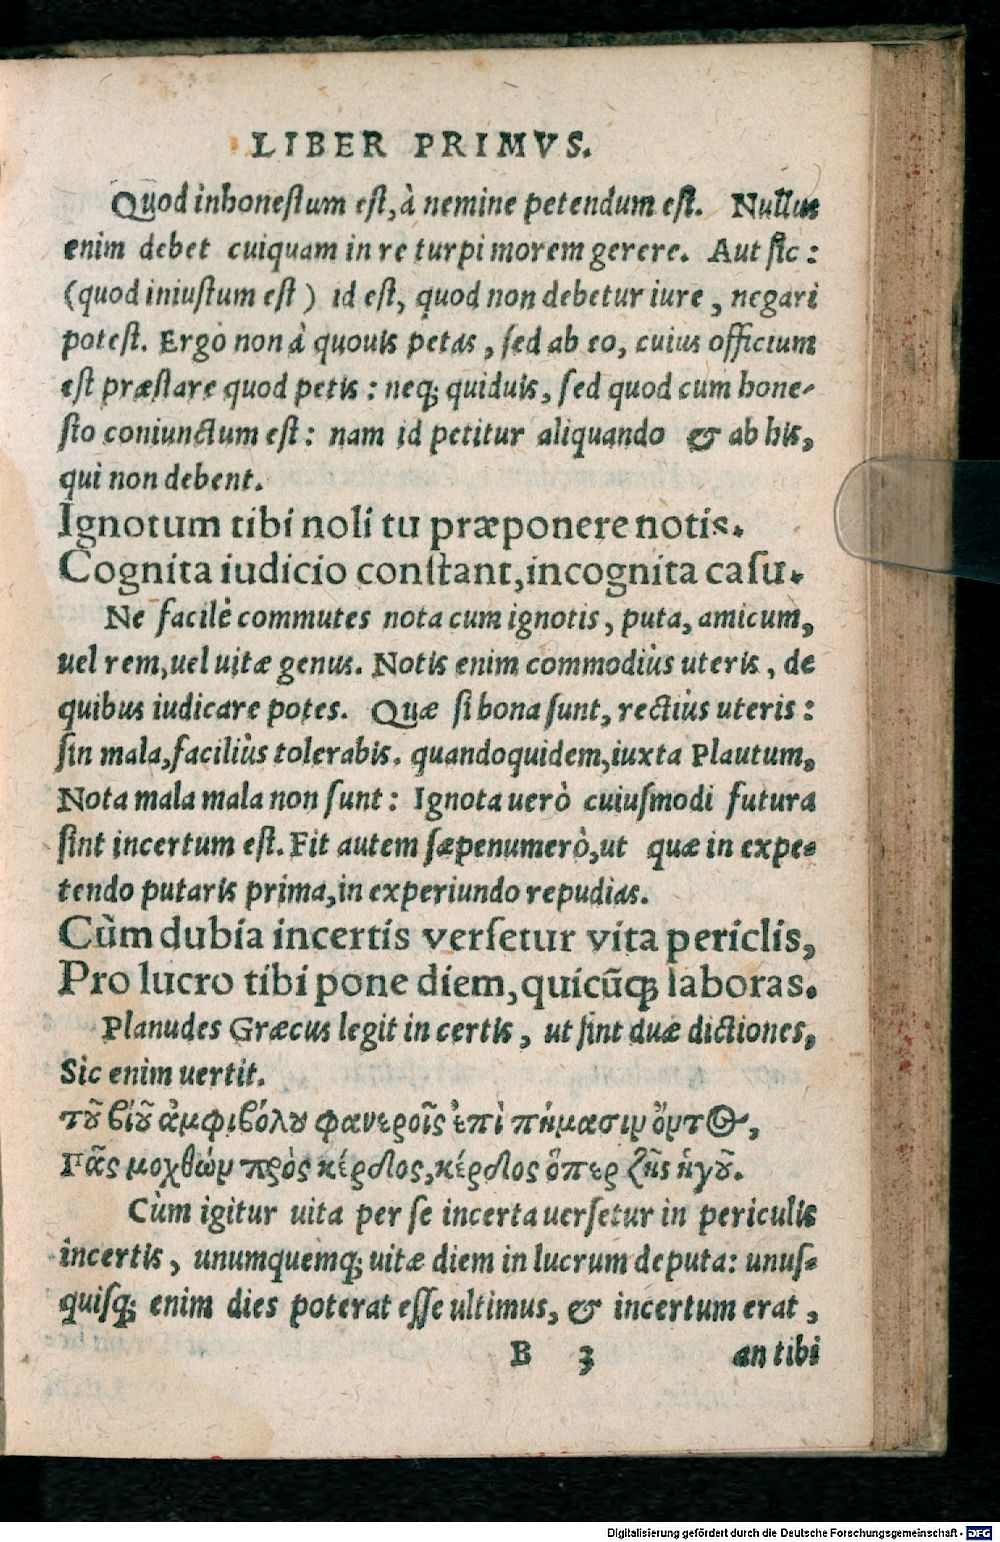 LIBER PRIMVS.
Quod inhonestum est, à nemine petendum est. Nullus
enim debet cuiquam in re turpi morem gerere. Aut sic:
(quod iniustum est) id est, quod non debetur iure, negari
potest. Ergo non à quouis petas, sed ab eo, cuius officium
est præstare quod petis: neq; quiduis, sed quod cum hone-
sto coniunctum est: nam id petitur aliquando & ab his,
qui non debent.
Ignotum tibi noli tu præponere notis.
Cognita iudicio constant, incognita casu.
Ne facilè commutes nota cum ignotis, puta, amicum,
uel rem, uel uitæ genus. Notis enim commodiùs uteris, de
quibus iudicare potes. Quæ si bona sunt, rectiùs uteris:
sin mala, faciliùs tolerabis. quandoquidem, iuxta Plautum,
Nota mala mala non sunt: Ignota uerò cuiusmodi futura
sint incertum est. Fit autem sæpenumerò, ut quæ in expe-
tendo putaris prima, in experiundo repudias.
Cùm dubia incertis versetur vita periclis,
Pro lucro tibi pone diem, quicũq; laboras.
Planudes Græcus legit in certis, ut sint duæ dictiones,
Sic enim uertit.
τοῦ βίου ἀμφιβόλου φανεροῖς ἐπὶ πήμασιν ὄντος,
Γᾶς μοχθῶν πρὸς κέρδος, κέρδος ὅπερ ζῇς ἡγοῦ.
Cùm igitur uita per se incerta uersetur in periculis
incertis, unumquemq; uitæ diem in lucrum deputa: unus-
quisq; enim dies poterat esse ultimus, & incertum erat,
B 3 an tibi
Digitalisierung gefördert durch die Deutsche Forschungsgemeinschaft - DFG